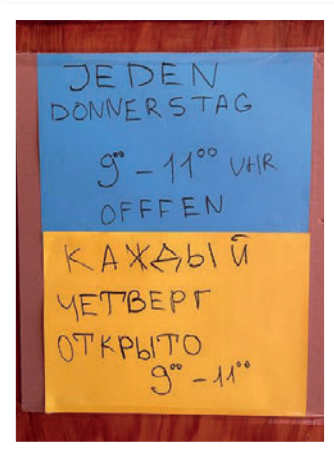 JEDEN
DONNERSTAG
9⁰⁰ - 11⁰⁰ UHR
OFFFEN
КАЖДЫЙ
ЧЕТВЕРГ
ОТКРЫТО
9⁰⁰ - 11⁰⁰